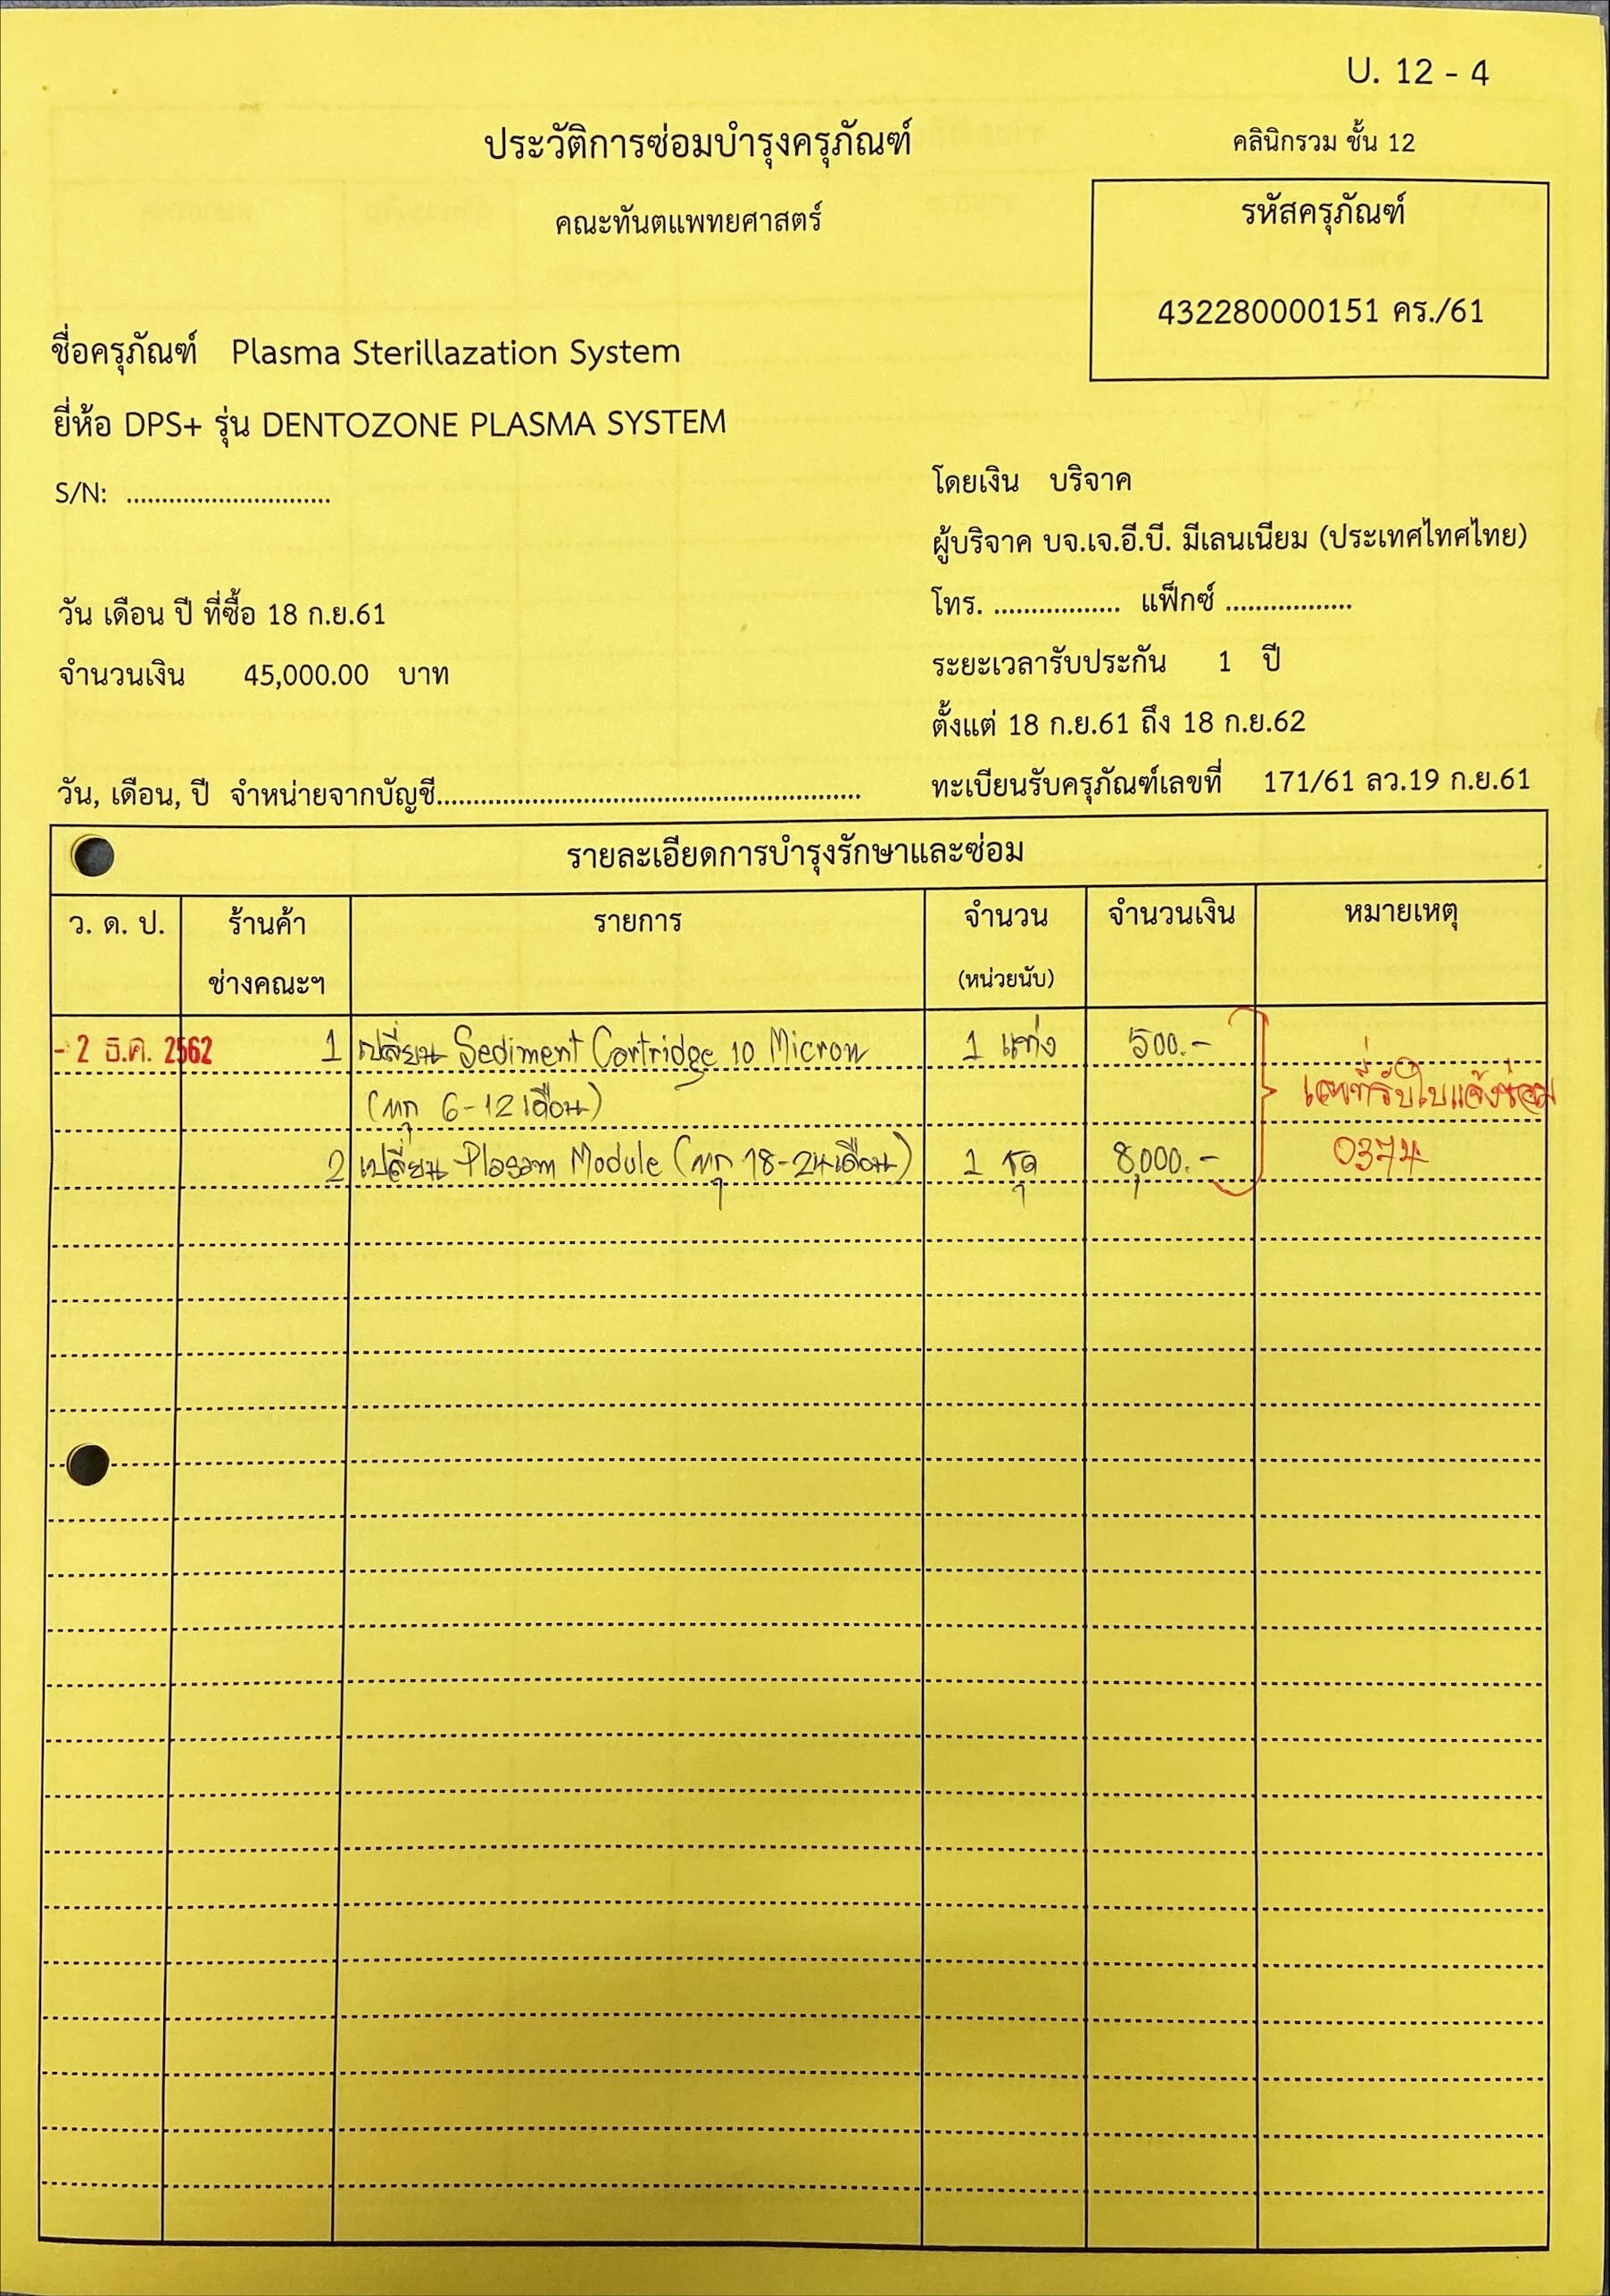 U. 12 - 4
ประวัติการซ่อมบำรุงครุภัณฑ์
คลินิกรวม ชั้น 12
คณะทันตแพทยศาสตร์
รหัสครุภัณฑ์
432280000151 คร./61
ชื่อครุภัณฑ์ Plasma Sterillazation System
ยี่ห้อ DPS+ รุ่น DENTOZONE PLASMA SYSTEM
S/N: .............................
โดยเงิน บริจาค
ผู้บริจาค บจ.เจ.อี.บี. มีเลนเนียม (ประเทศไทศไทย)
วัน เดือน ปี ที่ซื้อ 18 ก.ย.61
โทร. .................. แฟ็กซ์ ..................
จำนวนเงิน 45,000.00 บาท
ระยะเวลารับประกัน 1 ปี
ตั้งแต่ 18 ก.ย.61 ถึง 18 ก.ย.62
วัน, เดือน, ปี จำหน่ายจากบัญชี............................................................
ทะเบียนรับครุภัณฑ์เลขที่ 171/61 ลว.19 ก.ย.61
รายละเอียดการบำรุงรักษาและซ่อม
ว. ด. ป. ร้านค้า รายการ จำนวน จำนวนเงิน หมายเหตุ
ช่างคณะฯ (หน่วยนับ)
- 2 ธ.ค. 2562 1 เปลี่ยน Sediment Cartridge 10 Micron 1 แท่ง 500.-
(ทุก 6-12 เดือน) เลขที่รับใบแจ้งซ่อม
2 เปลี่ยน Plasam Module (ทุก 18-24 เดือน) 1 ชุด 8,000.- 0374